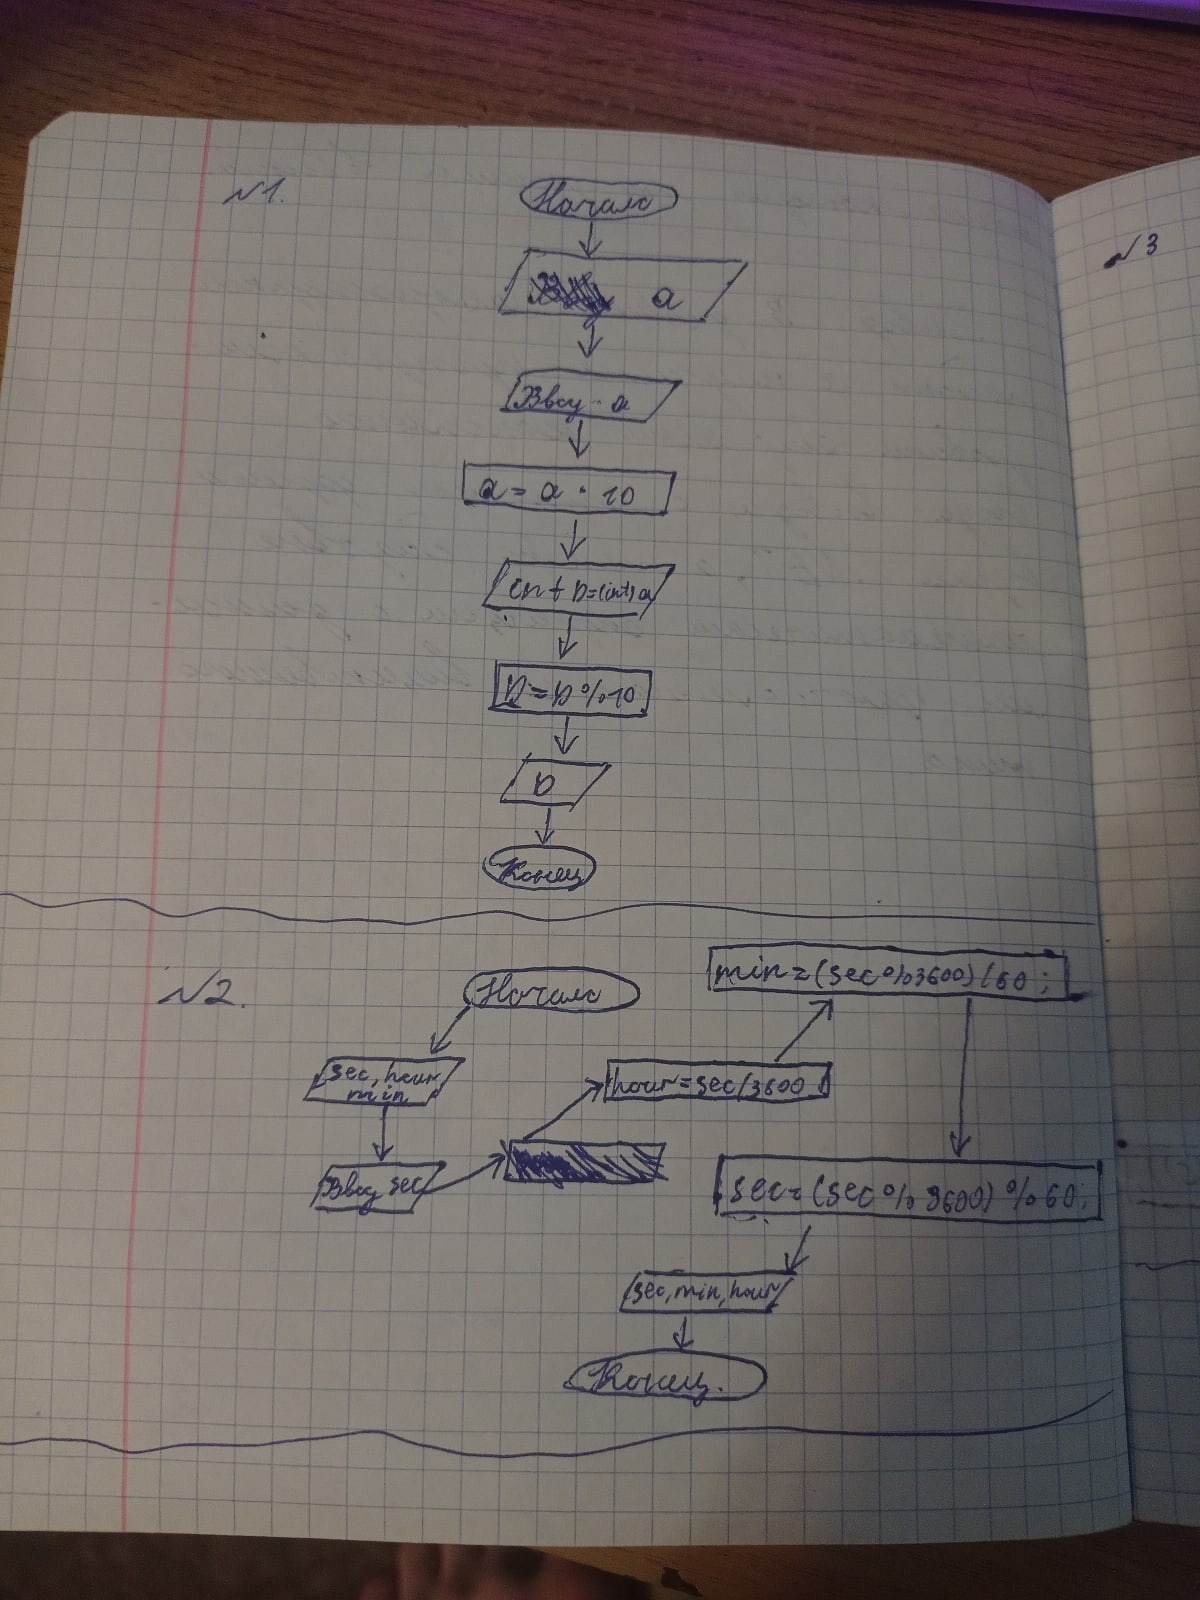 №1.
Начало
a
Ввод a
a = a · 10
int b=(int)a
b = b % 10
b
Конец
№2.
Начало
sec, hour
min
Ввод sec
hour = sec/3600
min = (sec % 3600) / 60 ;
sec = (sec % 3600) % 60;
sec, min, hour
Конец.
№3